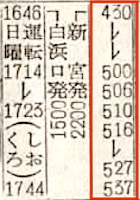 1646
日曜
運転
1714
レ
1723
(くろしお)
1744
白浜口発
1500
新宮発
2200
430
レ
500
506
510
516
レ
527
537